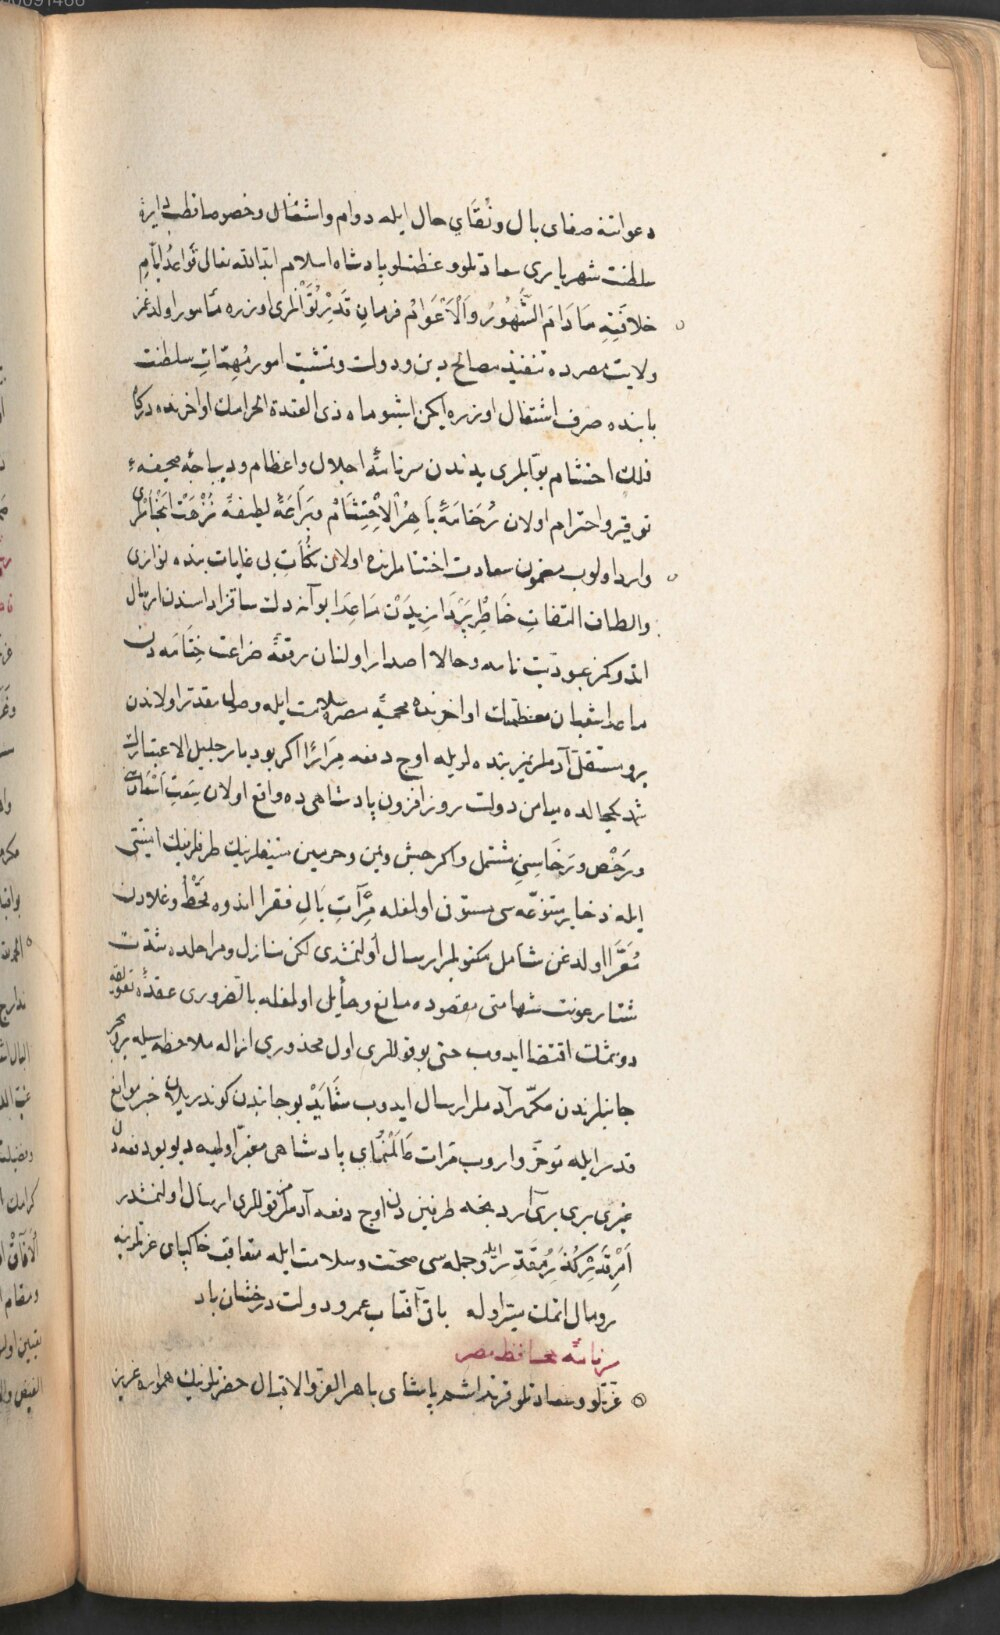 دعواتنه صفای بال ونقای حال ایله دوام واشتغال وخصوصا قطب دایرۀ
سلطنت شهریاری سعادتلو وعظمتلو پادشاه اسلام ابد الله تعالی قواعد ایام
خلافته ما دام الشهور والاعوام فرمان قدر توأملری اوزره مأمور اولدغمز
ولایت مصرده تنفیذ مصالح دین ودولت وتمشیت امور مهمات سلطنت
بابنده صرف اشتغال اوزره ایکن اشبو ماه ذی القعدة الحرامك اواخرنده درکاه
فلك احتشام بوابلری یدندن سرنامۀ اجلال واعظام ودیباجۀ صحیفۀ
توقیر واحترام اولان رخنامۀ باهر الاحتشام وبراعۀ لطیفۀ نزهت
وارد اولوب مضمون سعادت اختتاملرنده اولان نکات بی غایات بنده نوازی
والطاف التفات خاطر پردازیدن ماعدا بو آنه دك ساقزاداسندن ارسال
اتدوکمز عبودیت نامه وحالا اصدار اولنان رقعۀ ضراعت ختامه دن
ماعدا شعبان معظمك اواخرنده محمیۀ مصره سلامت ایله وصول مقدر اولاندن
برو مستقل آدملریمز بنده لریله اوچ دفعه مرارا اکر بو دیار جلیل الاعتبارك
شدیکیحالده میامن دولت روز افزون پادشاهی ده واقع اولان سعت اسعار
ورخص ورخاسن مشتمل واکر حبش ویمن وحرمین شریفلرینك طرفلرینك امنیتی
ایله ذخایر متنوعه سی مستوفی اولمغله مرآت بال فقرا اندوه قحط وغلادن
معرا اولدغن شامل مکتوبلر ارسال اولنمشدی لکن منازل ومراحلده شدت
شتا رعونت شهامتی مقصوده مانع وحایل اولمغله بالضروری عقدۀ تعویقه
دوشمك اقتضا ایدوب حتی بو قوللری اول محذوری ازاله ملاحظه سیله بر وبحر
جانبلرندن مکرر آدملر ارسال ایدوب شاید بو جانبدن کوندریلان خبر موانع
قدر ایله تأخر واروب مرات عالمنمای پادشاهی مغبر اولمیه دیو بو دفعه دن
غیری بری بری آردنجه طرفیندن اوچ دفعه آدملرمز قوللری ارسال اولنمشدر
امر قدر کذر مقدر ایله وجمله سی صحت وسلامت ایله متعاقب خاکپای عزتلرینه
رومال اتمك میسر اوله باقی آفتاب عمر ودولت درخشان باد
سرنامۀ محافظ مصر
عزتلو وسعادتلو قرنداشم پاشای باهر العز والاقبال حضرتلرینك همواره عزین